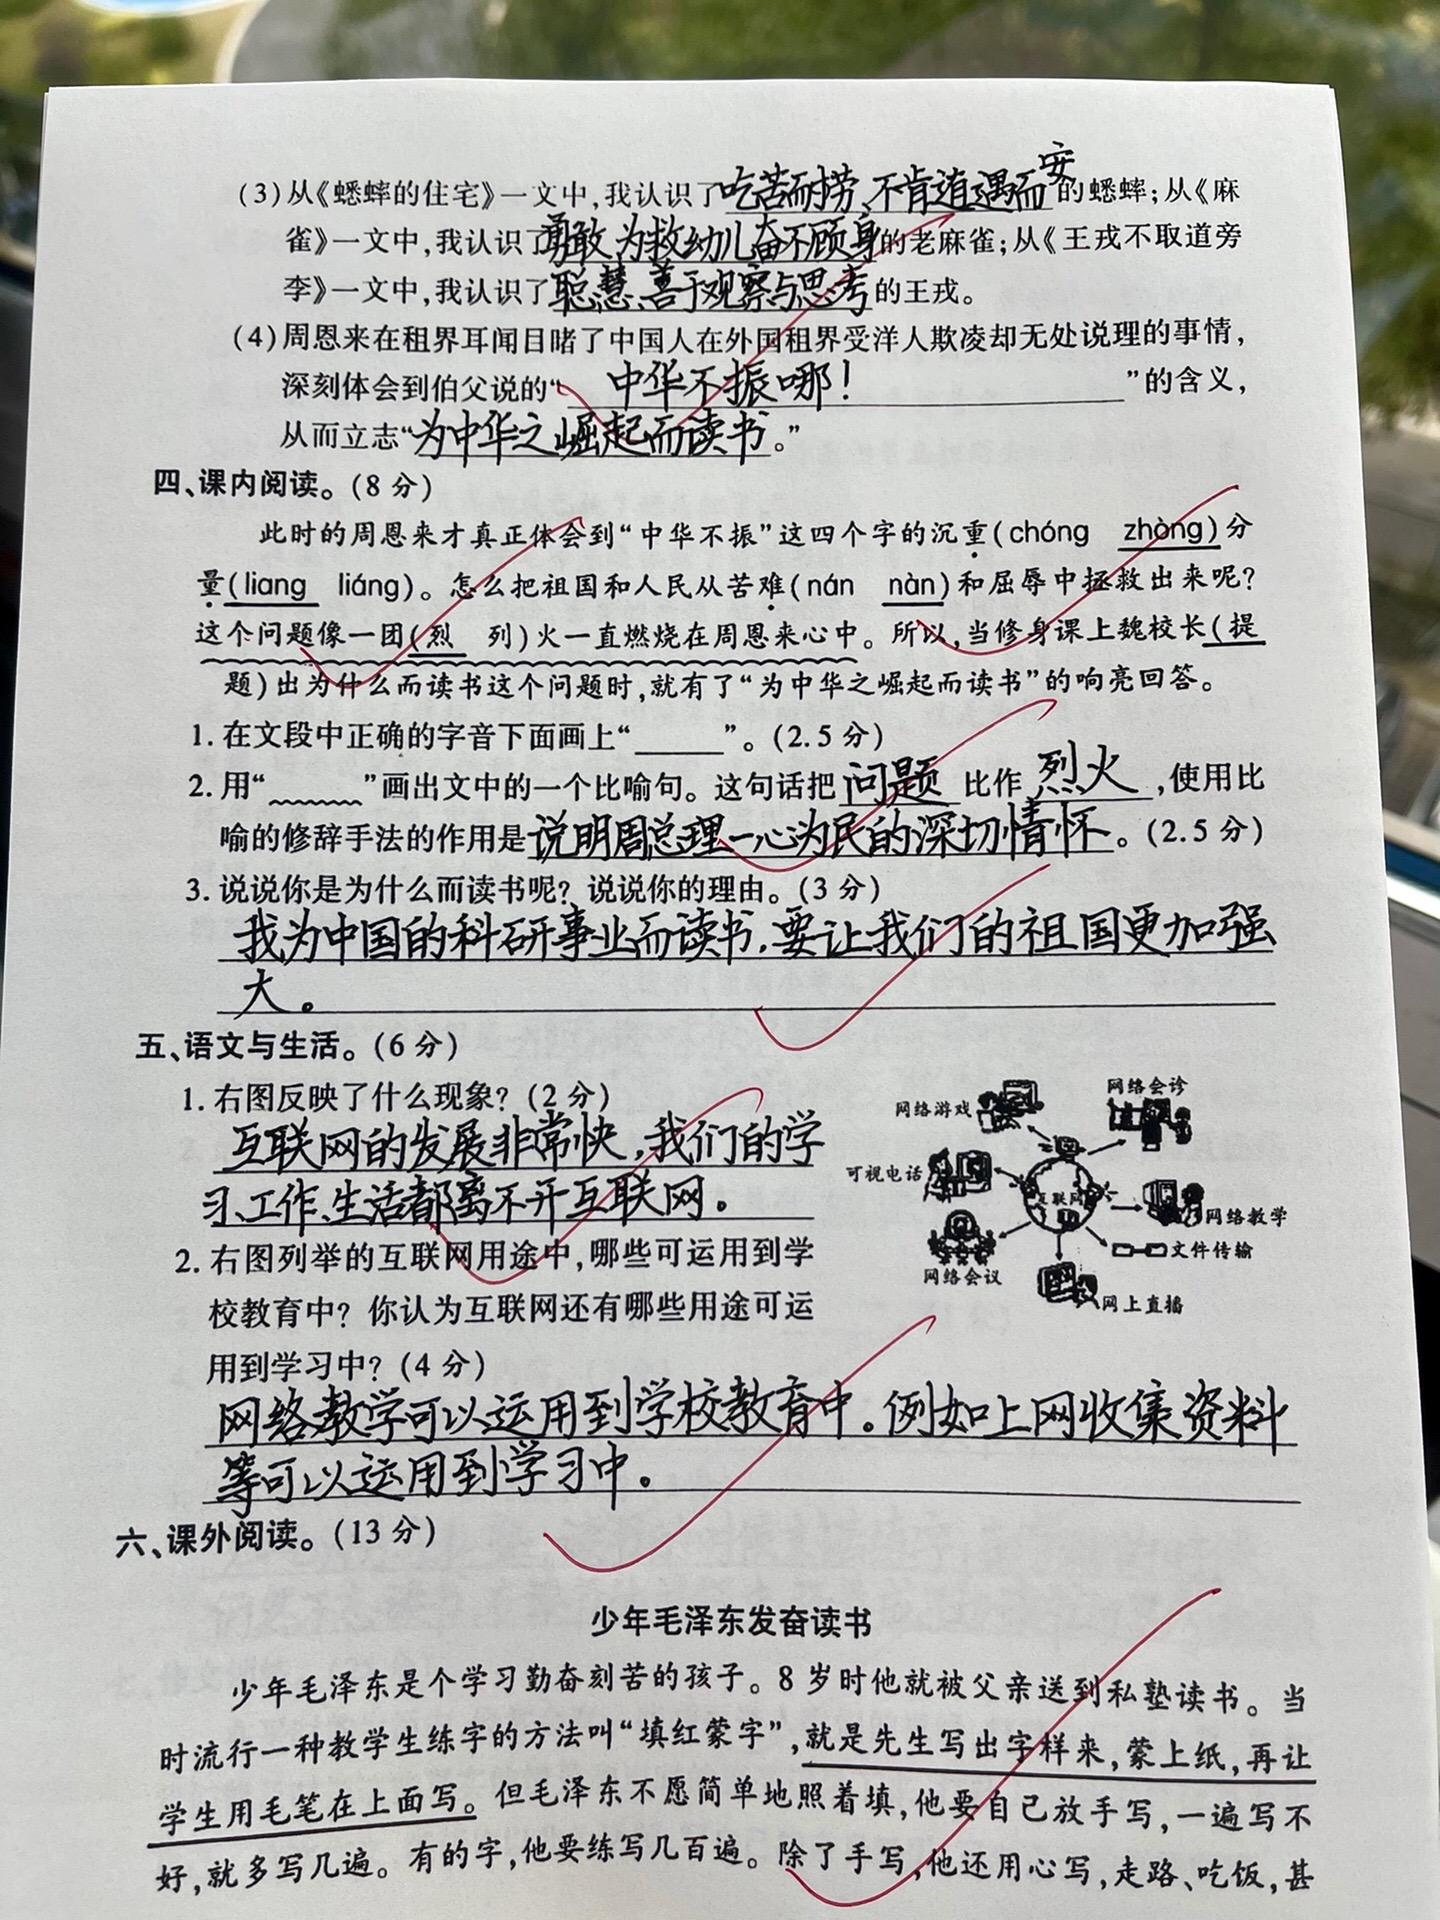 (3)从《蟋蟀的住宅》一文中,我认识了吃苦而捞、不肯逍遇而安的蟋蟀;从《麻
雀》一文中,我认识了勇敢、为救幼儿奋不顾身的老麻雀;从《王戎不取道旁
李》一文中,我认识了聪慧、善于观察与思考的王戎。
(4)周恩来在租界耳闻目睹了中国人在外国租界受洋人欺凌却无处说理的事情,
深刻体会到伯父说的“中华不振哪!”的含义,
从而立志“为中华之崛起而读书。”
四、课内阅读。(8分)
此时的周恩来才真正体会到“中华不振”这四个字的沉重(chóng zhòng)分
量(liang liáng)。怎么把祖国和人民从苦难(nán nàn)和屈辱中拯救出来呢?
这个问题像一团(烈 列)火一直燃烧在周恩来心中。所以,当修身课上魏校长(提
题)出为什么而读书这个问题时,就有了“为中华之崛起而读书”的响亮回答。
1.在文段中正确的字音下面画上“______”。(2.5分)
2.用“______”画出文中的一个比喻句。这句话把问题比作烈火,使用比
喻的修辞手法的作用是说明周总理一心为民的深切情怀。(2.5分)
3.说说你是为什么而读书呢?说说你的理由。(3分)
我为中国的科研事业而读书,要让我们的祖国更加强
大。
五、语文与生活。(6分)
1.右图反映了什么现象?(2分)
互联网的发展非常快,我们的学
习、工作、生活都离不开互联网。
2.右图列举的互联网用途中,哪些可运用到学
校教育中?你认为互联网还有哪些用途可运
用到学习中?(4分)
网络游戏
网络会诊
可视电话
互联网
网络教学
文件传输
网络会议
网上直播
网络教学可以运用到学校教育中。例如上网收集资料
等可以运用到学习中。
六、课外阅读。(13分)
少年毛泽东发奋读书
少年毛泽东是个学习勤奋刻苦的孩子。8岁时他就被父亲送到私塾读书。当
时流行一种教学生练字的方法叫“填红蒙字”,就是先生写出字样来,蒙上纸,再让
学生用毛笔在上面写。但毛泽东不愿简单地照着填,他要自己放手写,一遍写不
好,就多写几遍。有的字,他要练写几百遍。除了手写,他还用心写,走路、吃饭,甚